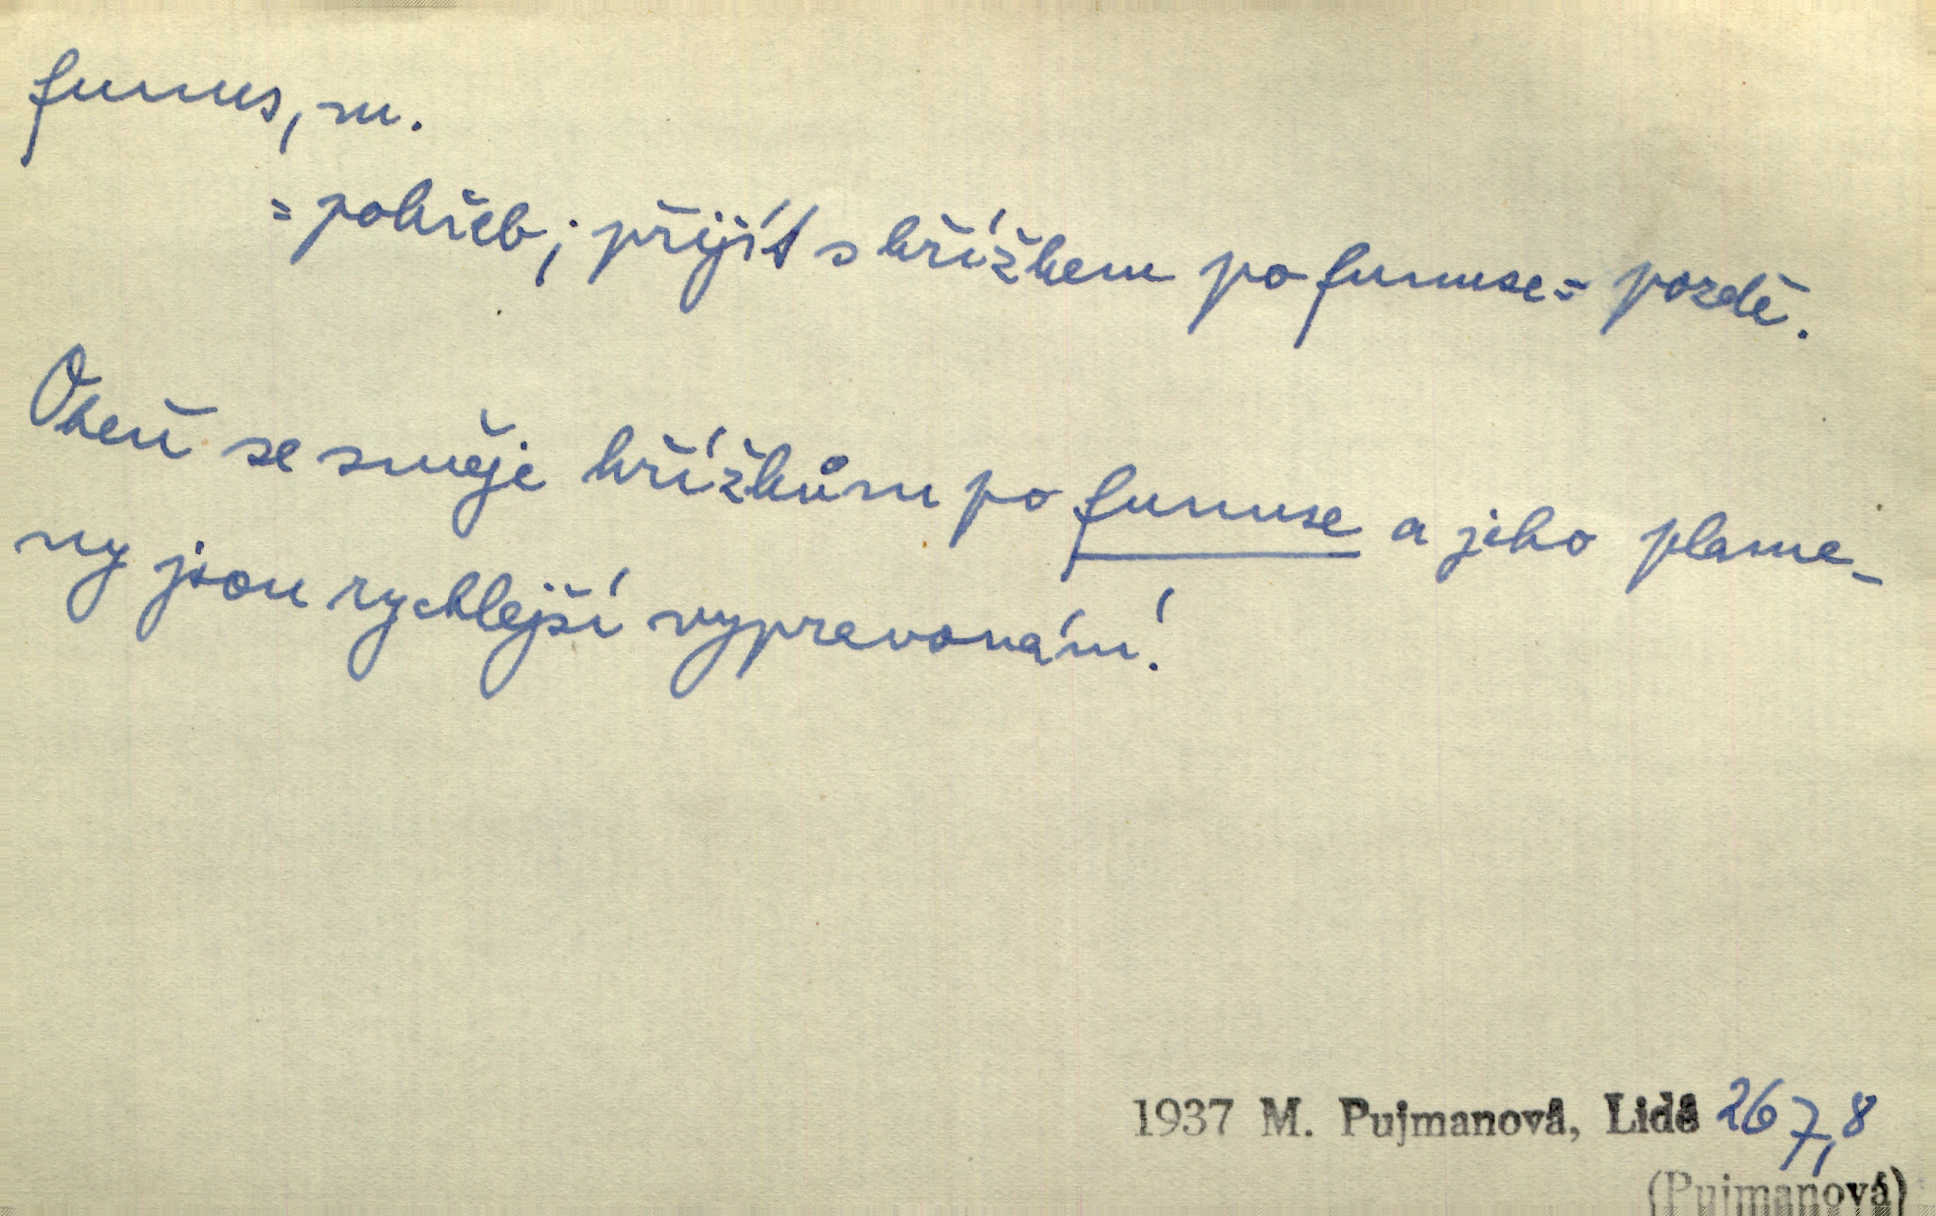 funus, m.
= pohřeb; přijít s křížkem po funuse = pozdě.
Oheň se směje křížkům po funuse a jeho plame-
ny jsou rychlejší vypravování!
1937 M. Pujmanová, Lidé 267,8
(Pujmanová)